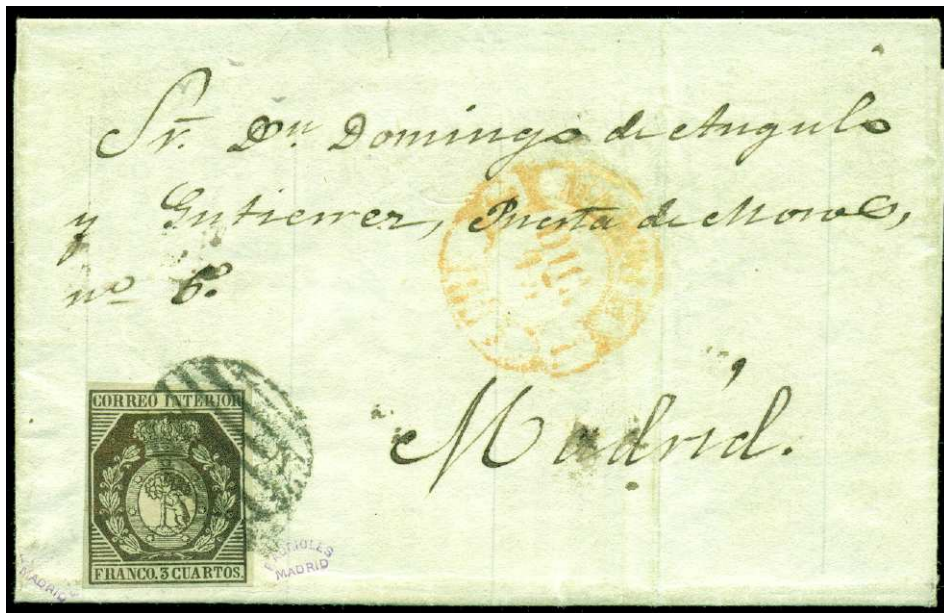 Sr. Dn. Domingo de Angulo
y Gutierrez, Puerta de Moros,
nº 6º
Madrid.
CORREO INTERIOR
FRANCO. 3 CUARTOS.
MADRID
MADRID